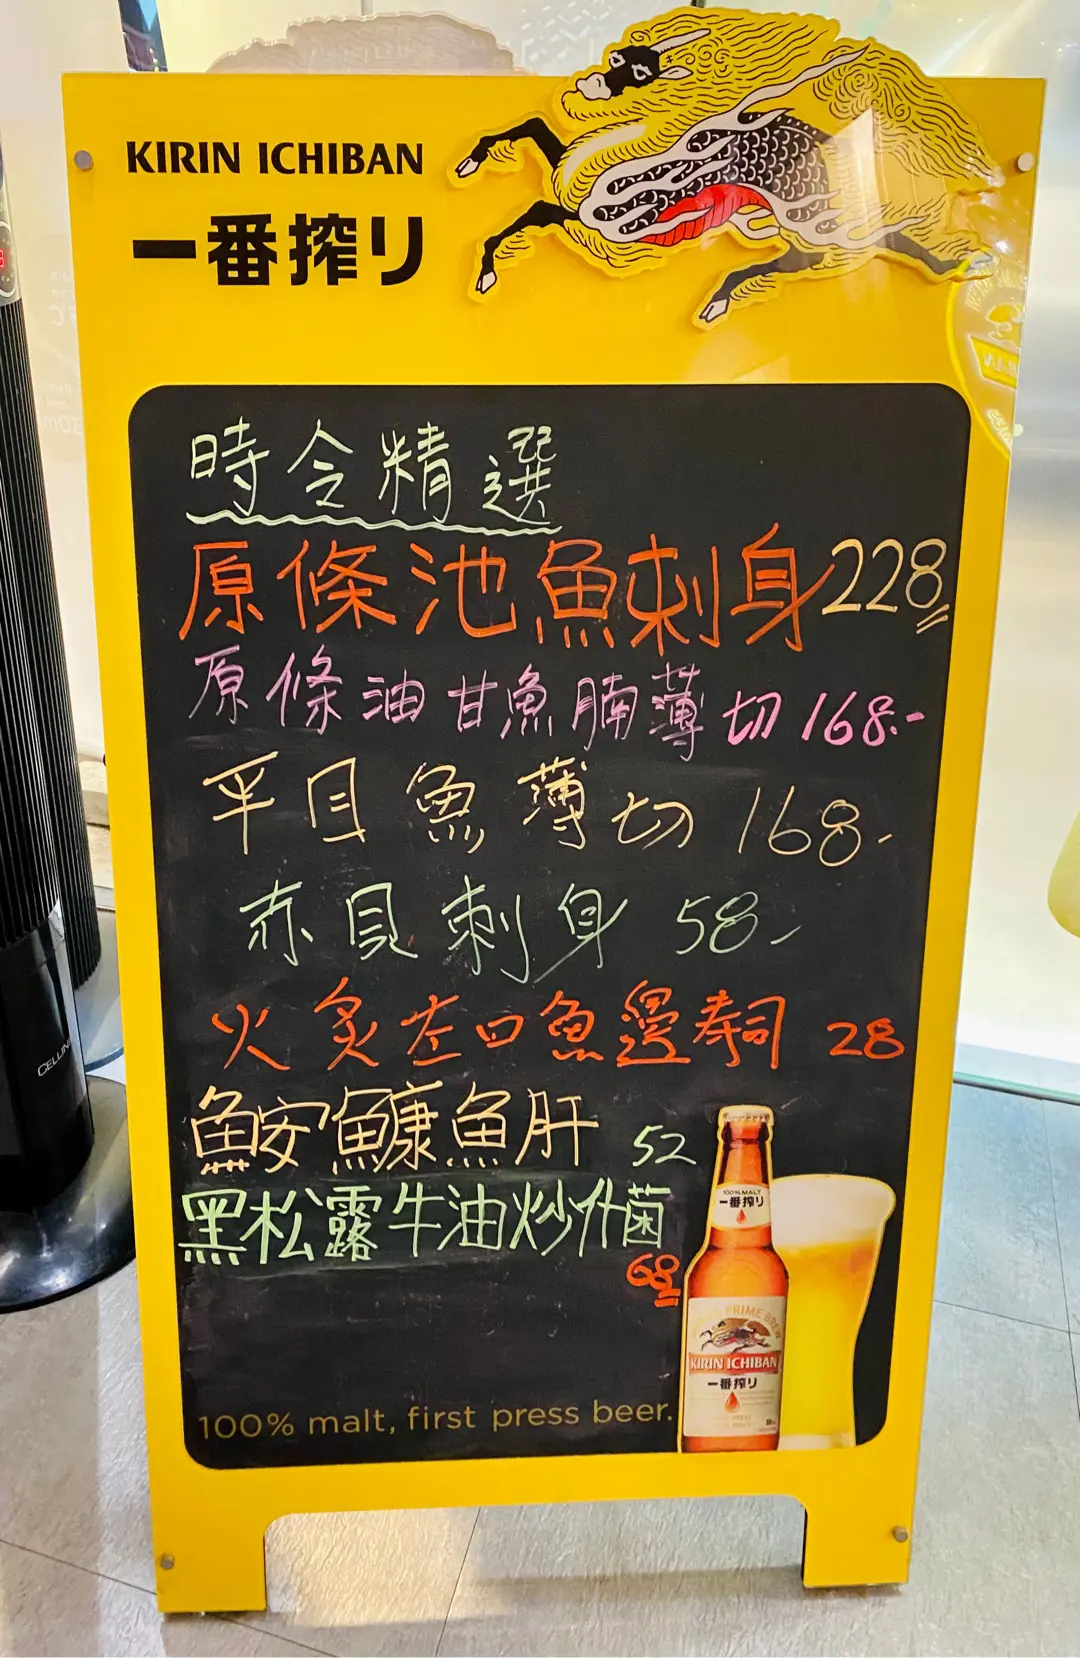 KIRIN ICHIBAN
一番搾り
時令精選
原條池魚刺身228
原條油甘魚腩薄切 168.-
平目魚薄切 168.-
赤貝刺身 58-
火炙左口魚邊寿司 28
鮟鱇魚肝 52
黑松露牛油炒什菌
68
100% MALT
一番搾り
PRIME BREW
KIRIN ICHIBAN
一番搾り
100% malt, first press beer.
CELLINI